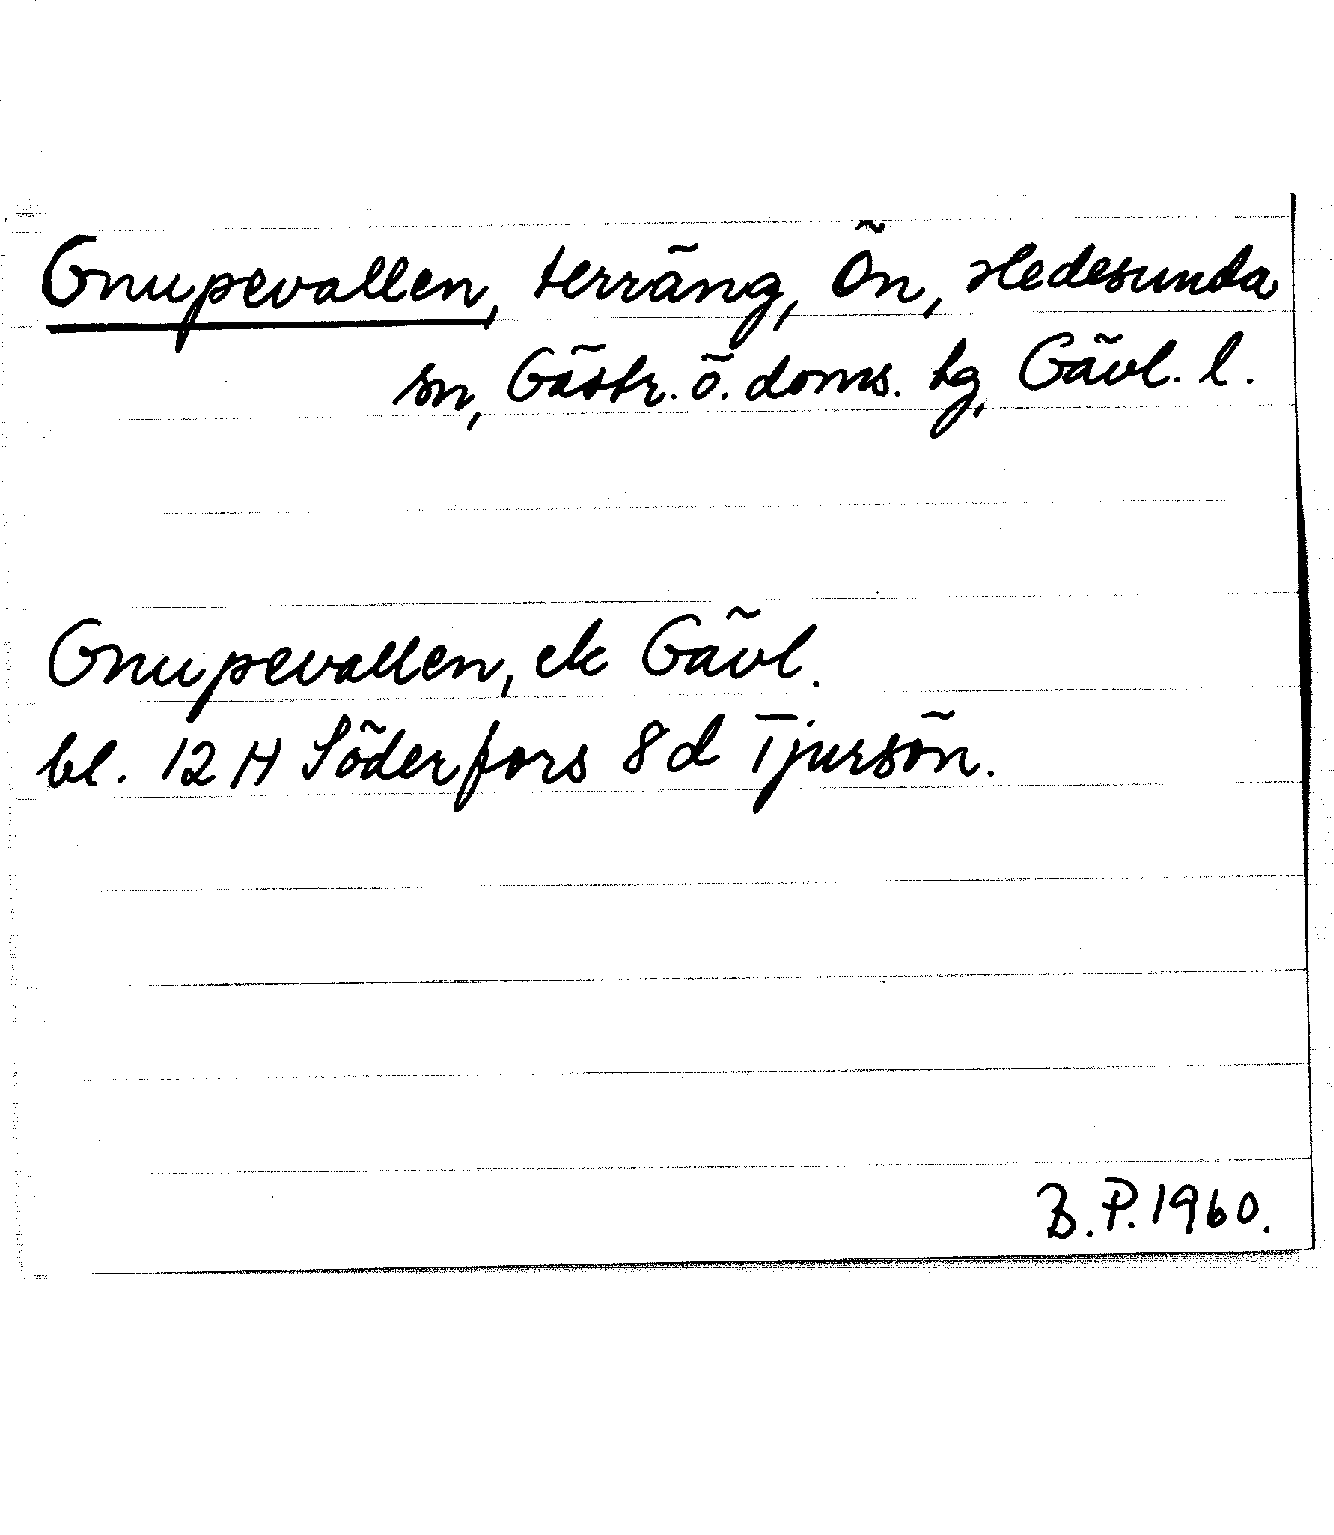 Gnupevallen, terräng, Ön, Hedesunda
sn, Gästr. ö. doms. tg, Gävl. l.
Gnupevallen, ek Gävl.
bl. 12 H Söderfors 8 d Tjursön.
B. P. 1960.